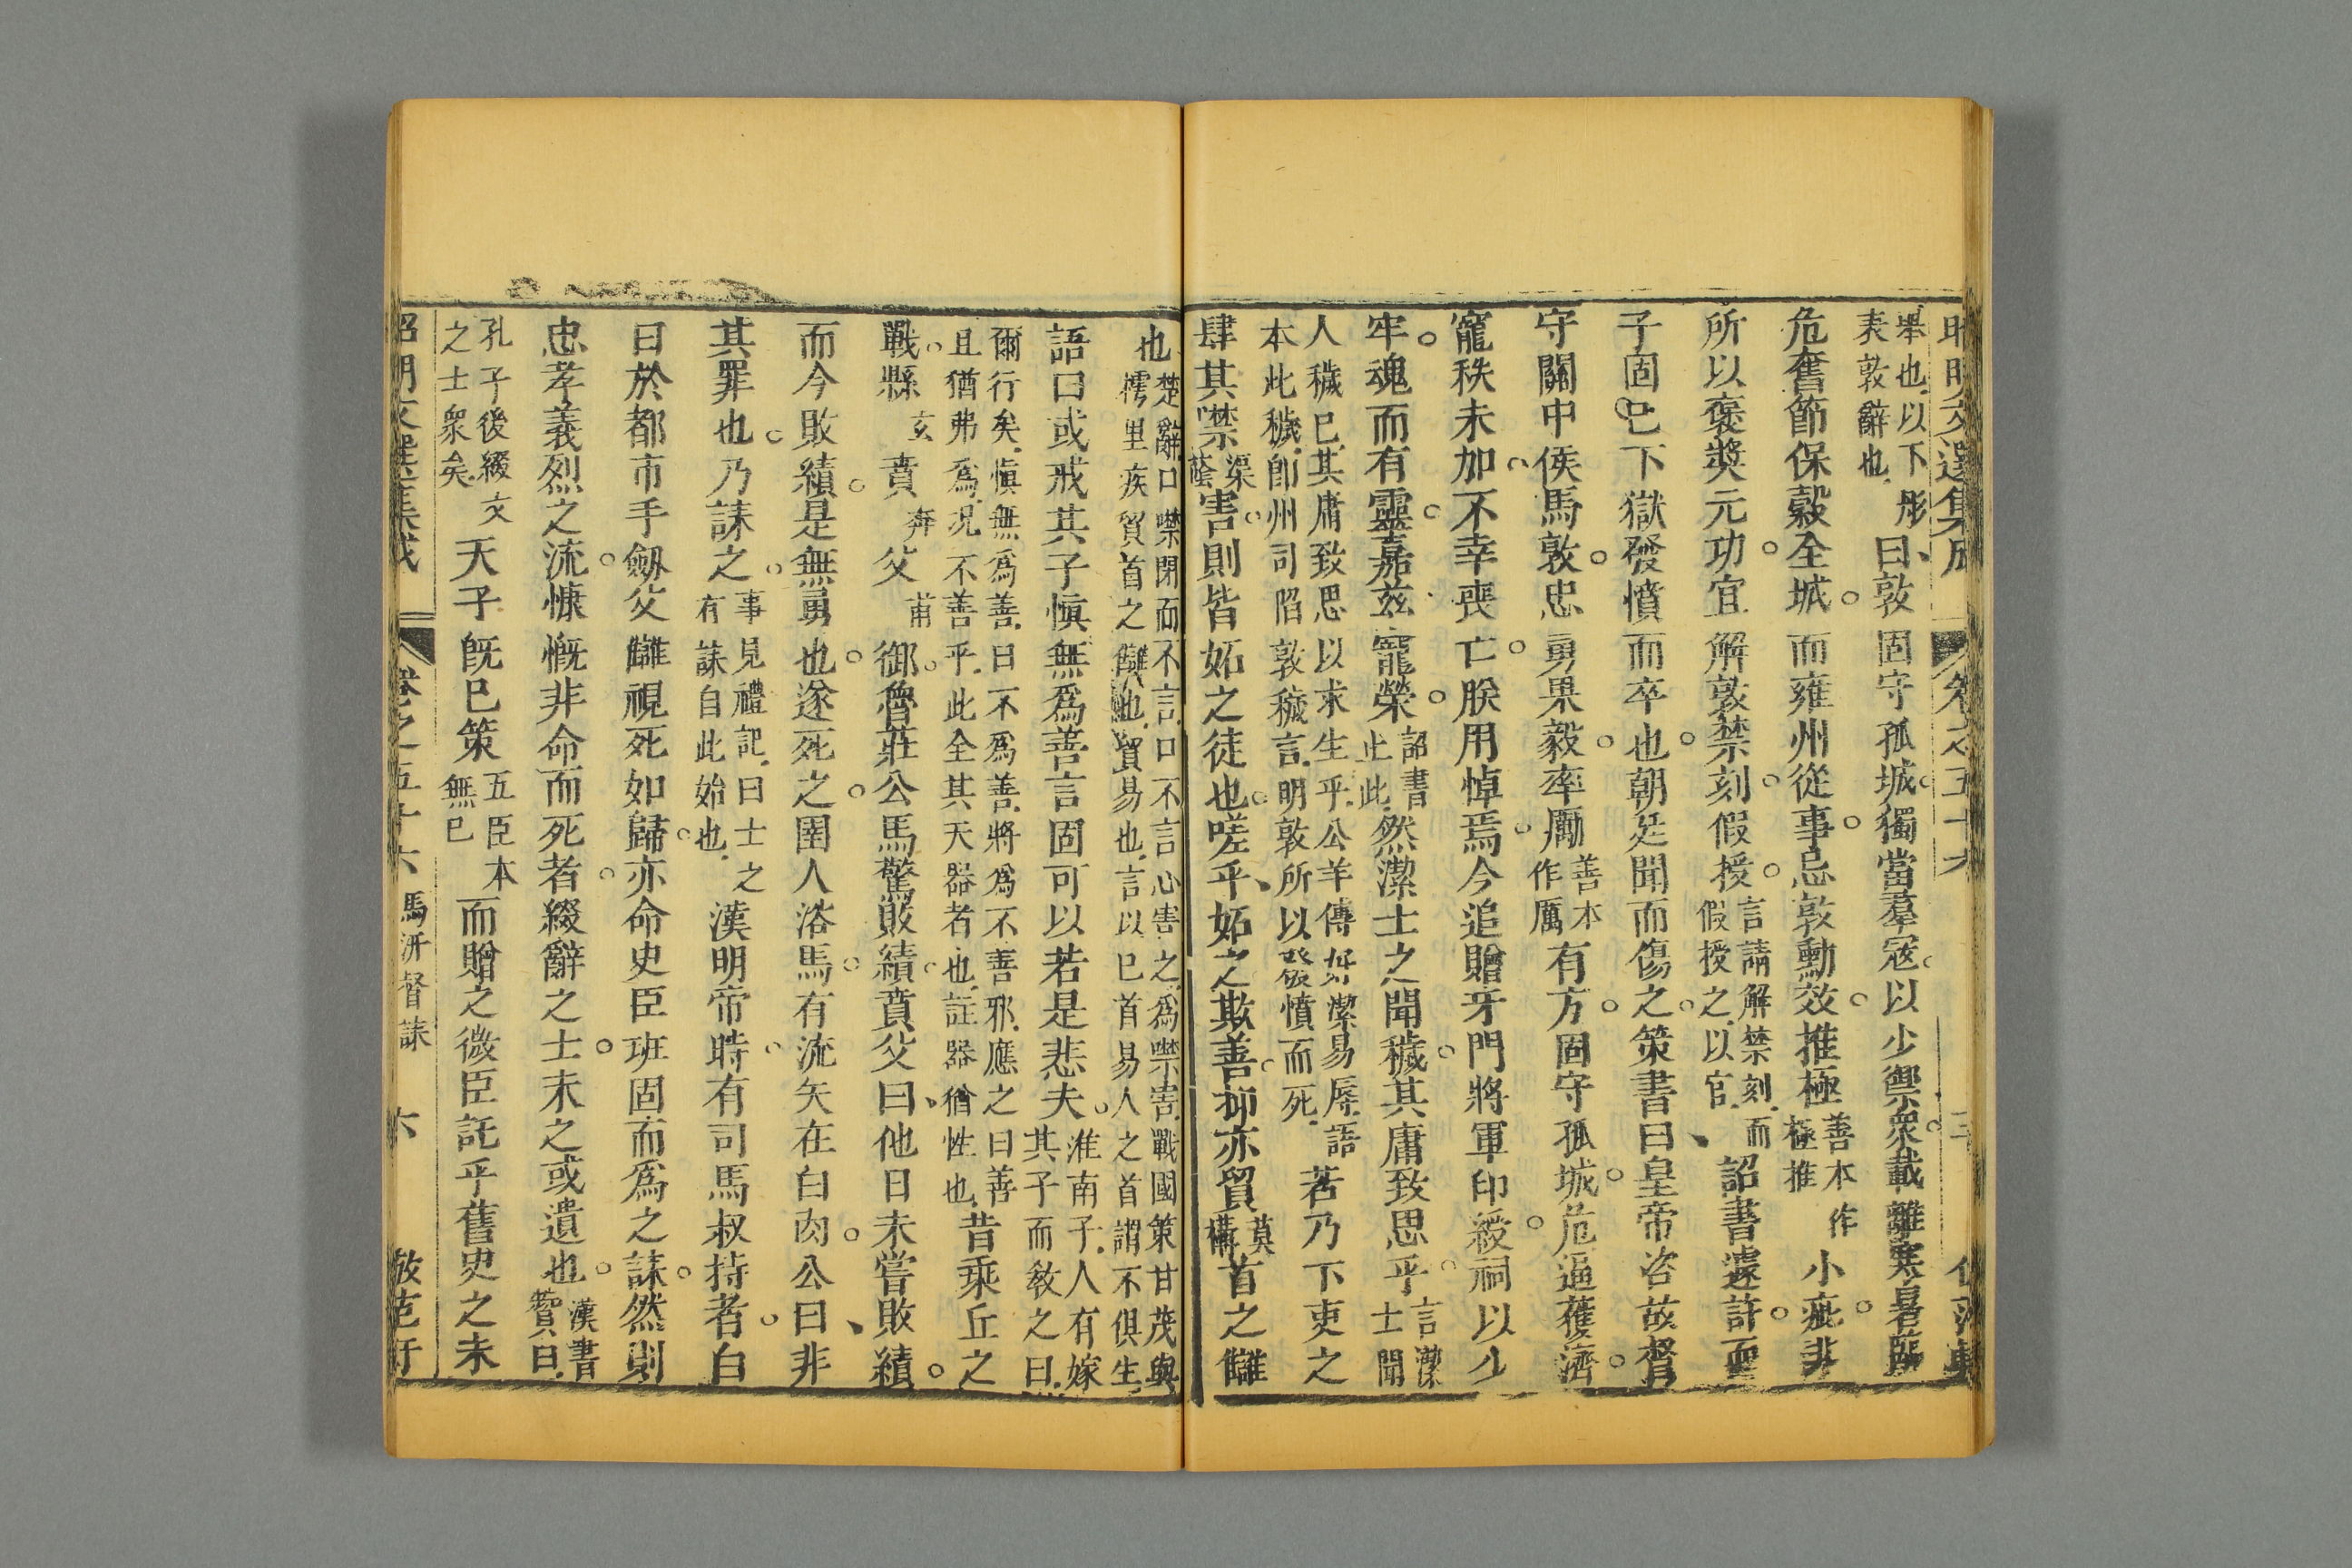 舉也以下彤
表敦辭也
曰敦固守孤城獨當羣寇以少禦衆載離寒暑臨
危奮節保穀全城而雍州從事忌敦勳效推極善本作
極推
小疵非
所以褒奬元功宜解敦禁刻假授言請解禁刻而
假授之以官
詔書遽許而
子固巳下獄發憤而卒也朝廷聞而傷之策書曰皇帝咨故督
守關中侯馬敦忠勇果毅率厲善本
作厲
有方固守孤城危逼獲濟
寵秩未加不幸喪亡朕用悼焉今追贈牙門將軍印綬祠以少
牢魂而有靈嘉茲寵榮詔書
止此
然潔士之聞穢其庸致思乎言潔
士聞
人穢巳其庸致思以求生乎公羊傳好潔易辱語
本此穢卽州司陷敦穢言明敦所以發憤而死
若乃下吏之
肆其噤渠
蔭
害則皆妬之徒也嗟乎妬之欺善抑亦貿莫
構
首之讎
也
楚辭口噤閉而不言口不言心害之爲噤害戰國策甘茂與
樗里疾貿首之讎也貿易也言以巳首易人之首謂不俱生
語曰或戒其子愼無爲善言固可以若是悲夫淮南子人有嫁
其子而敎之曰
爾行矣愼無爲善曰不爲善將爲不善邪應之曰善
且猶弗爲况不善乎此全其天器者也註器猶性也
昔乘丘之
戰縣玄賁奔父甫御魯莊公馬驚敗績賁父曰他日未嘗敗績
而今敗績是無勇也遂死之圉人浴馬有流矢在白肉公曰非
其罪也乃誄之事見禮記曰士之
有誄自此始也
漢明帝時有司馬叔持者白
日於都市手劔父讎視死如歸亦命史臣班固而爲之誄然則
忠孝義烈之流慷慨非命而死者綴辭之士未之或遺也漢書
贊曰
孔子後綴文
之士衆矣
天子旣巳策五臣本
無巳
而贈之微臣託乎舊史之末
卷之五十六 馬汧督誄 六